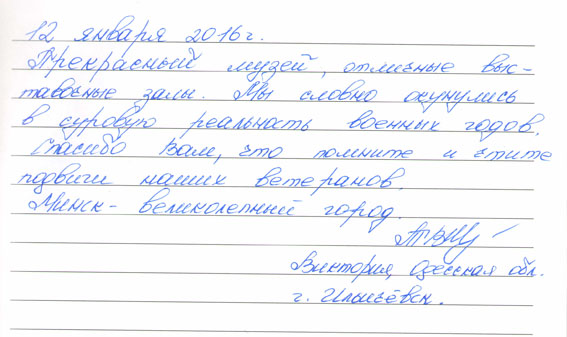 12 января 2016г.
Прекрасный музей, отличные выс-
тавочные залы. Мы словно окунулись
в суровую реальность военных годов.
Спасибо Вам, что помните и чтите
подвиги наших ветеранов.
Минск - великолепный город.
Виктория, Одесская обл.
г. Ильичёвск.